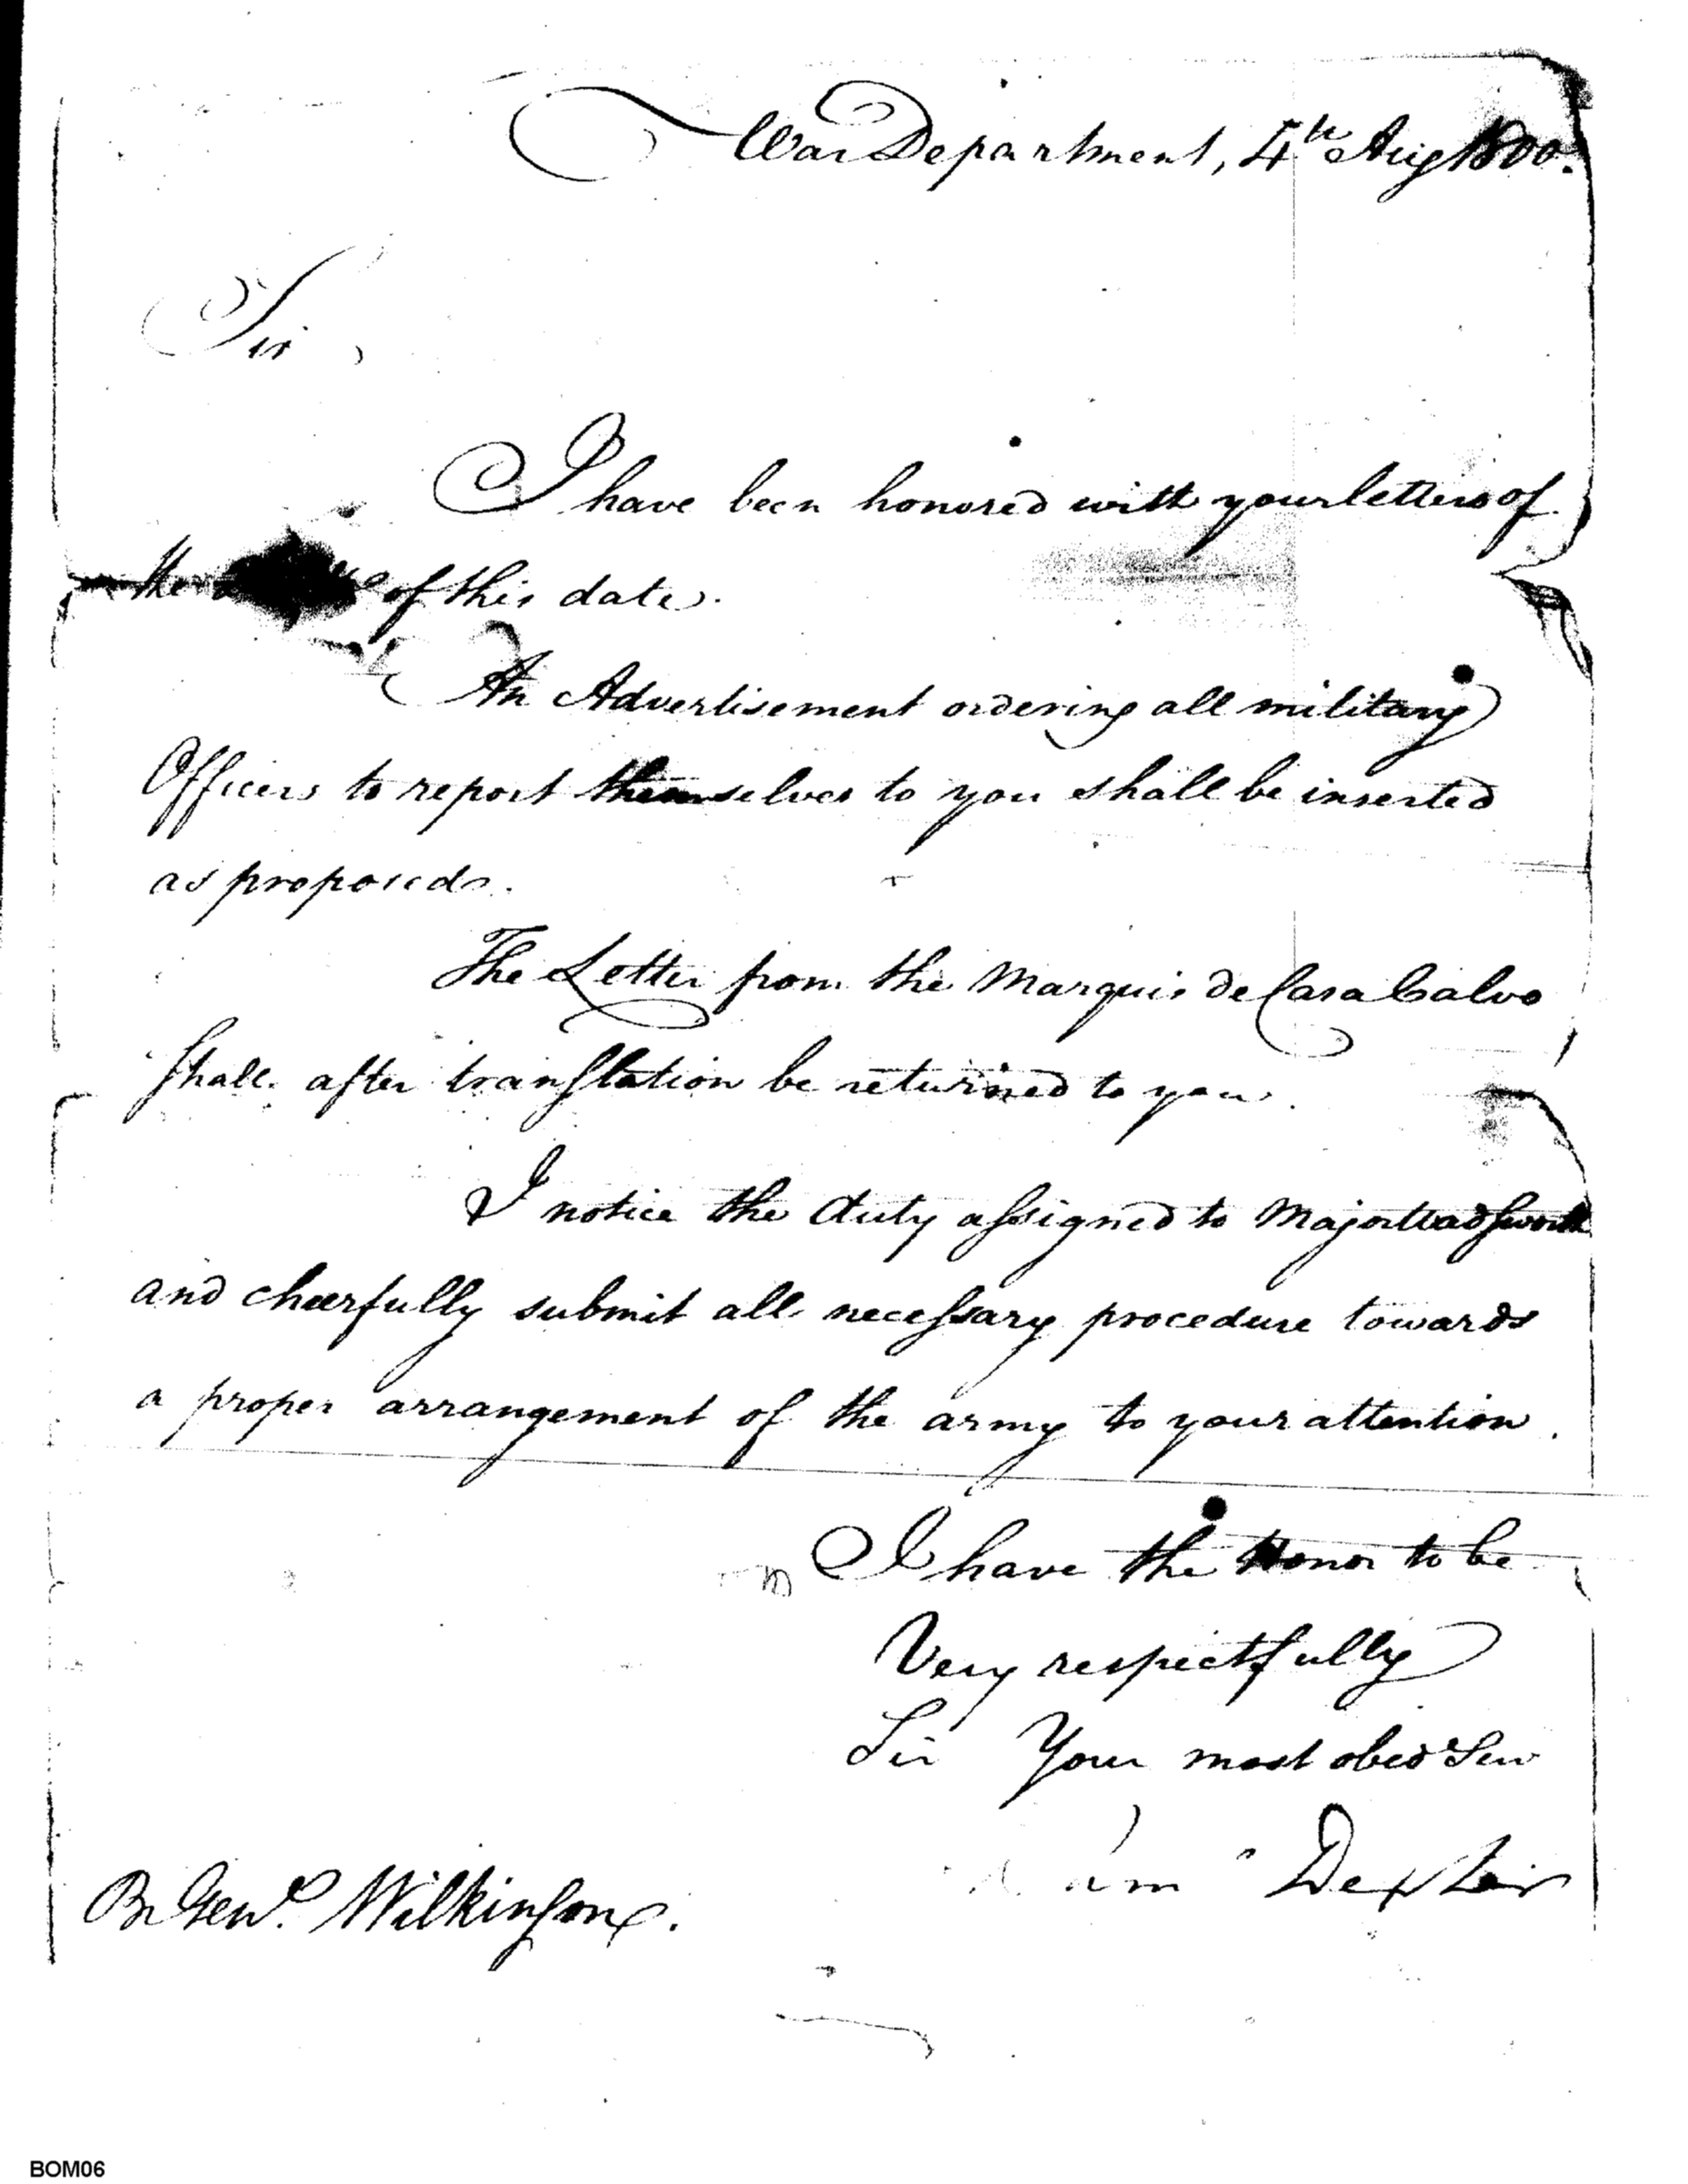 War Department, 4th Aug 1800.
Sir,
I have been honored with your letters of
the of this date.
An Advertisement ordering all military
Officers to report themselves to you shall be inserted
as proposed.
The Letter from the Marquis de Casa Calvo
shall after translation be returned to you.
I notice the duty assigned to Major Wadsworth
and cheerfully submit all necessary procedure towards
a proper arrangement of the army to your attention.
I have the Honor to be
Very respectfully
Sir Your most obed Serv
Dexter
Br Genl. Wilkinson.
BOM06